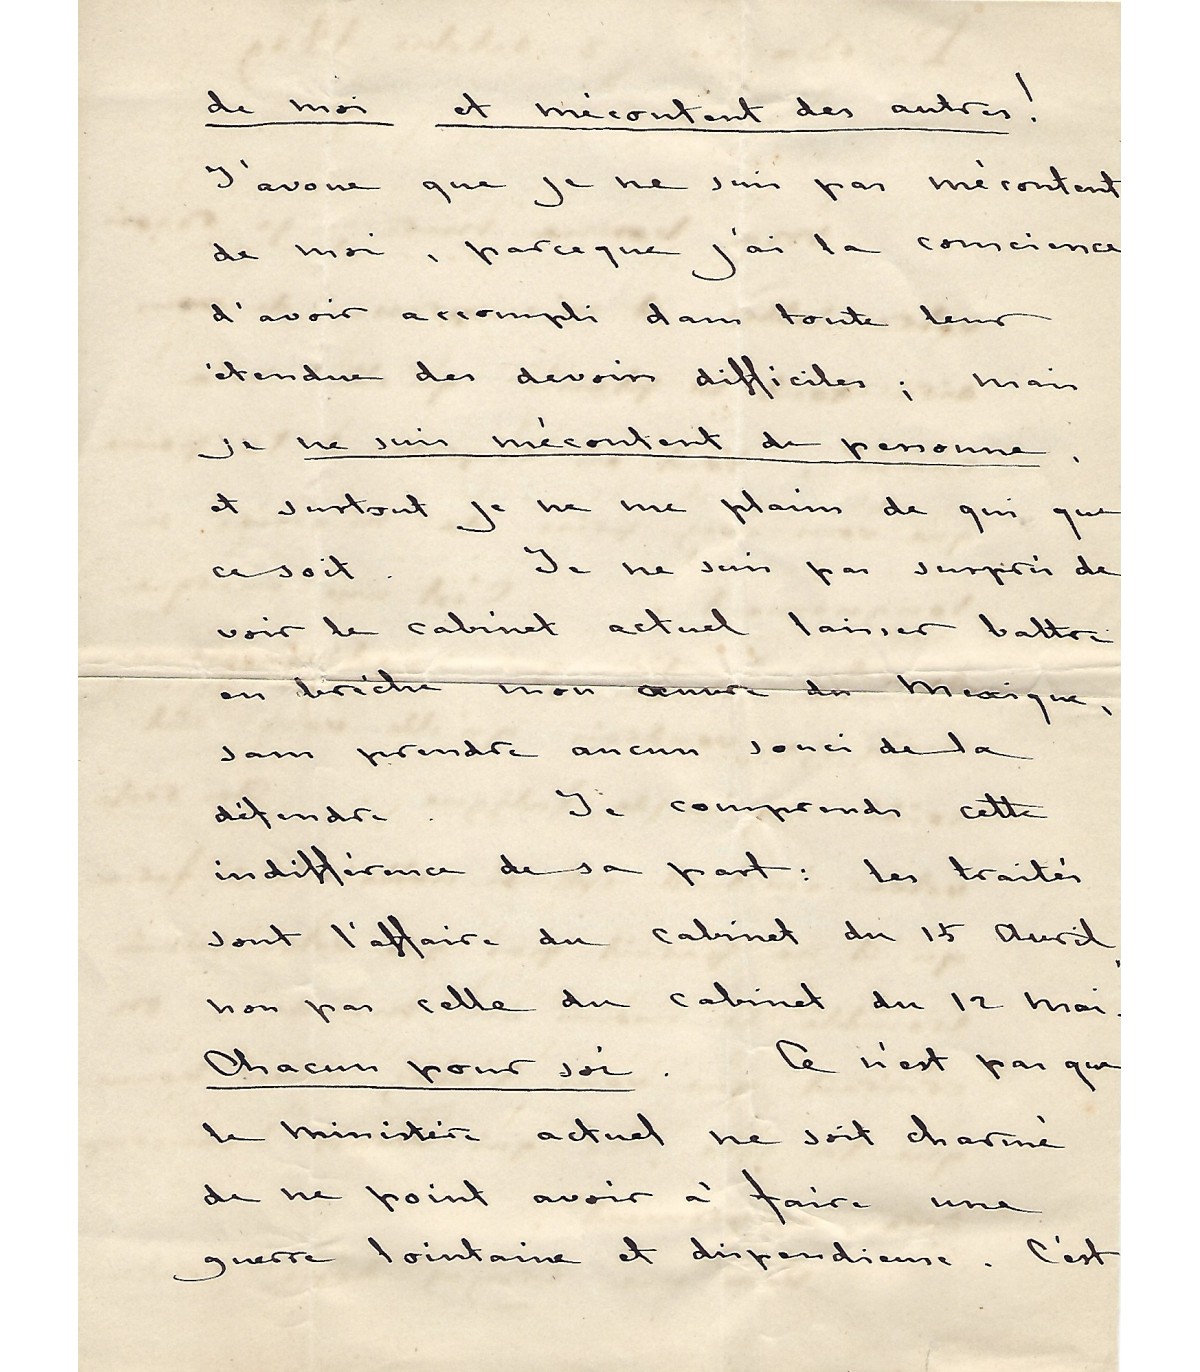 de moi et mécontent des autres!
J'avoue que je ne suis pas mécontent
de moi, parceque j'ai la conscience
d'avoir accompli dans toute leur
étendue des devoirs difficiles; mais
je ne suis mécontent de personne,
et surtout je ne me plains de qui que
ce soit. Je ne suis pas surpris de
voir le cabinet actuel laisser battre
en brèche mon œuvre du Mexique,
sans prendre aucun souci de la
défendre. Je comprends cette
indifférence de sa part: les traités
sont l'affaire du cabinet du 15 Avril,
non pas celle du cabinet du 12 mai.
Chacun pour soi. Ce n'est pas que
le ministère actuel ne soit charmé
de ne point avoir à faire une
guerre lointaine et dispendieuse. C'est